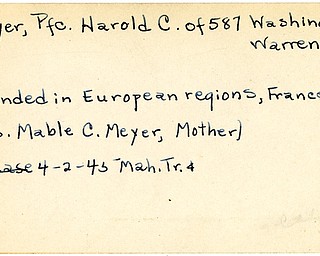 yer, Pfc. Harold C. of 587 Washin
Warren
nded in European regions, France
s. Mable C. Meyer, Mother)
ease 4-2-45 Mah. Tr. 4